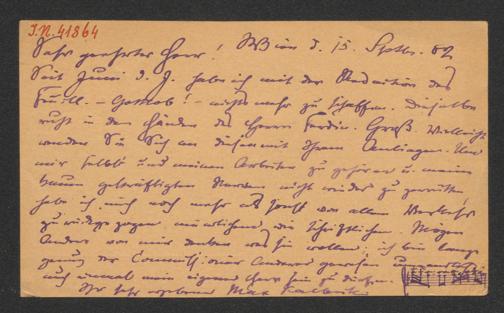 J.N. 41864
Sehr geehrter Herr! Wien d. 15. Septbr. 82
Seit Juni d. J. habe ich mit der Redaction des
Feuill. – Gottlob! – nichts mehr zu schaffen. Dieselbe
ruht in den Händen des Herrn Ferdin. Groß. Vielleicht
wenden Sie Sich an diesen mit Ihrem Anliegen. Um
mir selbst und meinen Arbeiten zu gehören und meine
kaum gekräftigten Nerven nicht wieder zu zerrütten,
habe ich mich noch mehr als sonst von allem Verkehr
zurückgezogen, mündlichem wie schriftlichem. Mögen
Andere von mir denken was sie wollen, ich bin lange
genug der Commis Anderer gewesen, um
auch einmal mein eigener Herr sein zu dürfen.
Ihr sehr ergebener Max Kalbeck